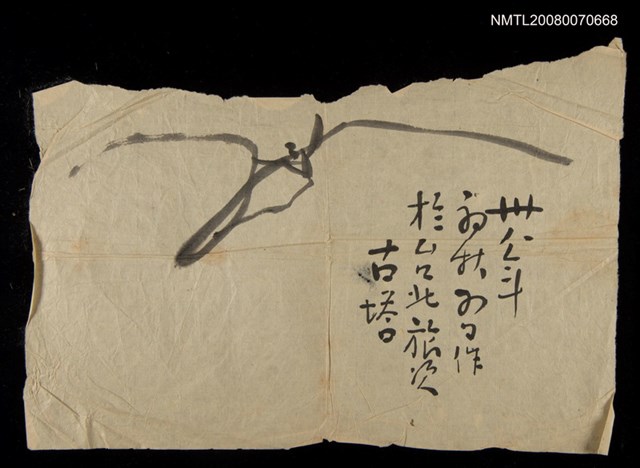 NMTL20080070668
卅八年
初秋 日作
於台北旅次
古塔